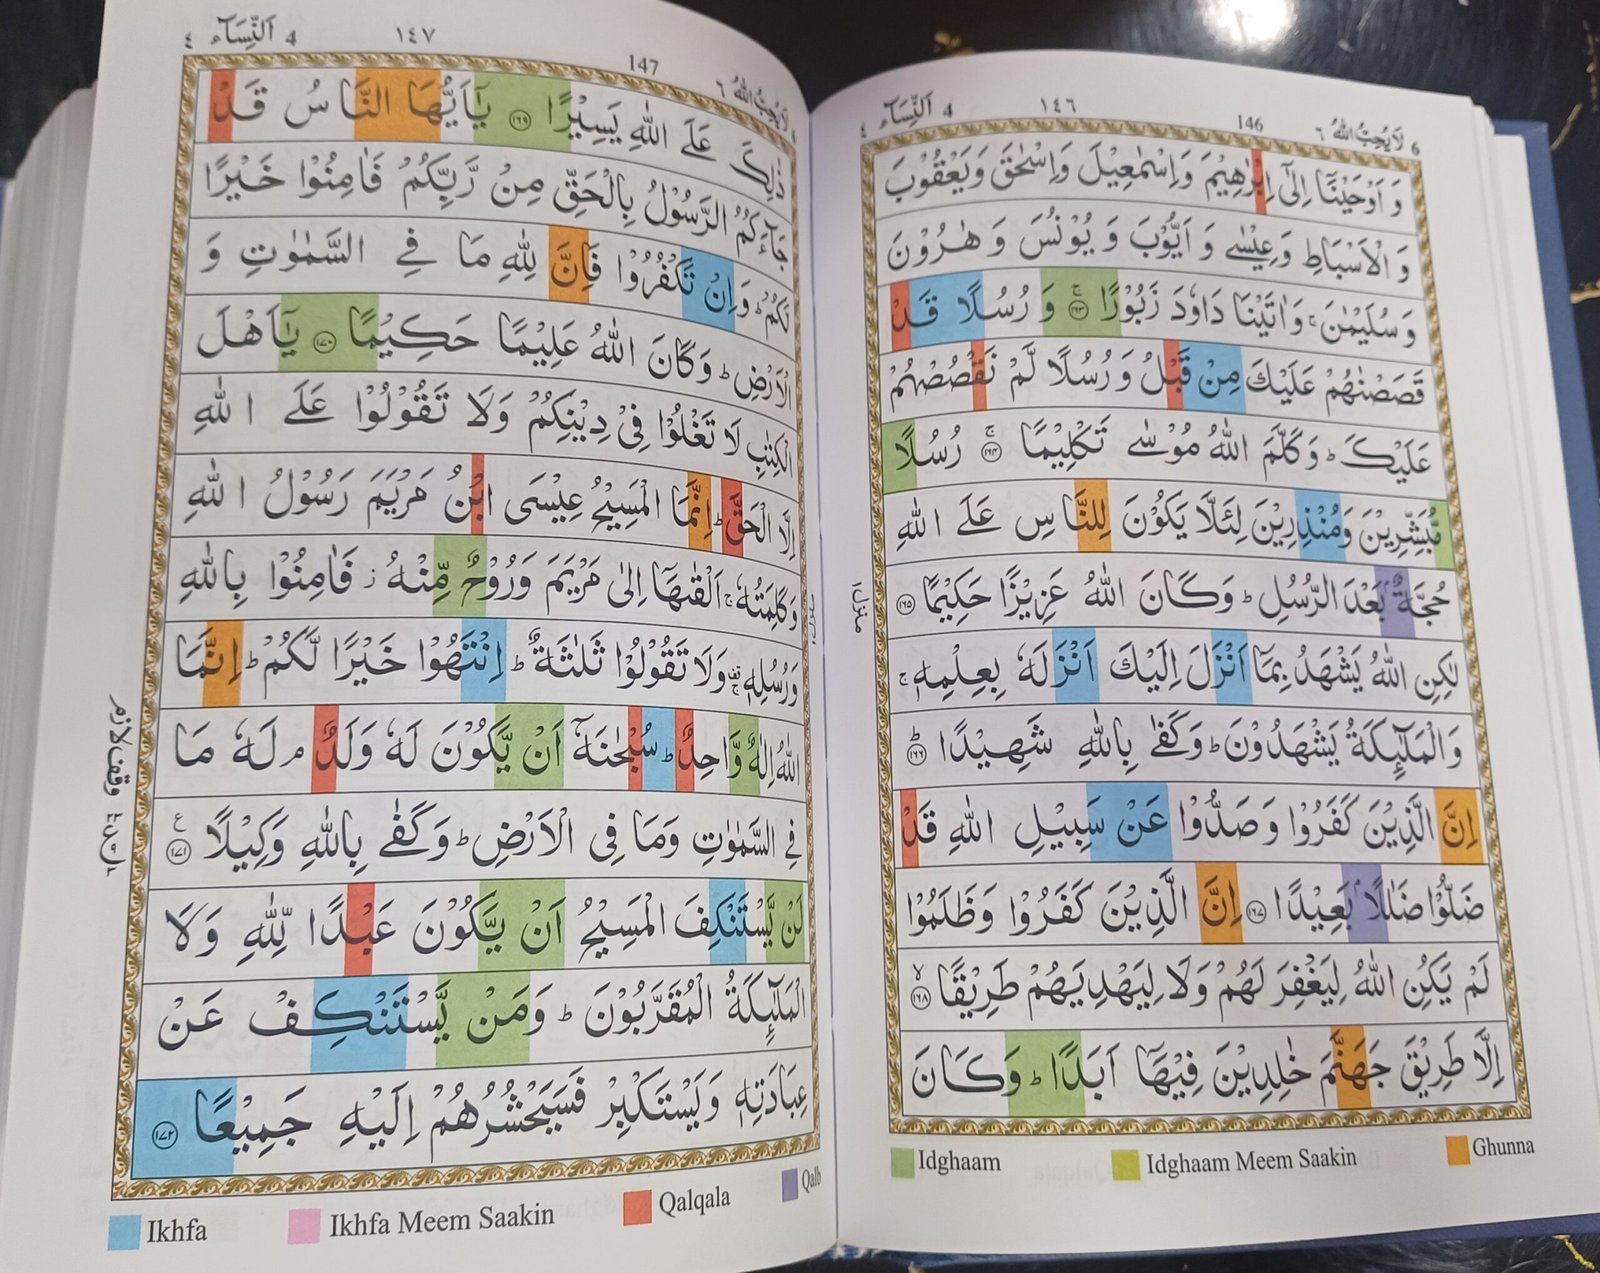 ٤ اَلنِّسَآء 4 ١٤٦ 146 لَا يُحِبُّ اللهُ ٦ 6
وَ اَوْحَيْنَآ اِلٰٓى اِبْرٰهِيْمَ وَاِسْمٰعِيْلَ وَاِسْحٰقَ وَيَعْقُوْبَ
وَ الْاَسْبَاطِ وَعِيْسٰى وَ اَيُّوْبَ وَ يُوْنُسَ وَ هٰرُوْنَ
وَ سُلَيْمٰنَ ۚ وَاٰتَيْنَا دَاوٗدَ زَبُوْرًا ۚ ﴿١٦٣﴾ وَ رُسُلًا قَدْ
قَصَصْنٰهُمْ عَلَيْكَ مِنْ قَبْلُ وَ رُسُلًا لَّمْ نَقْصُصْهُمْ
عَلَيْكَ ؕ وَكَلَّمَ اللهُ مُوْسٰى تَكْلِيْمًا ۚ ﴿١٦٤﴾ رُسُلًا
مُّبَشِّرِيْنَ وَمُنْذِرِيْنَ لِئَلَّا يَكُوْنَ لِلنَّاسِ عَلَى اللهِ
حُجَّةٌۢ بَعْدَ الرُّسُلِ ؕ وَكَانَ اللهُ عَزِيْزًا حَكِيْمًا ﴿١٦٥﴾
لٰكِنِ اللهُ يَشْهَدُ بِمَآ اَنْزَلَ اِلَيْكَ اَنْزَلَهٗ بِعِلْمِهٖ ۚ
وَالْمَلٰٓئِكَةُ يَشْهَدُوْنَ ؕ وَكَفٰى بِاللهِ شَهِيْدًا ؕ ﴿١٦٦﴾
اِنَّ الَّذِيْنَ كَفَرُوْا وَ صَدُّوْا عَنْ سَبِيْلِ اللهِ قَدْ
ضَلُّوْا ضَلٰلًاۢ بَعِيْدًا ﴿١٦٧﴾ اِنَّ الَّذِيْنَ كَفَرُوْا وَظَلَمُوْا
لَمْ يَكُنِ اللهُ لِيَغْفِرَ لَهُمْ وَلَا لِيَهْدِيَهُمْ طَرِيْقًا ۙ ﴿١٦٨﴾
اِلَّا طَرِيْقَ جَهَنَّمَ خٰلِدِيْنَ فِيْهَآ اَبَدًا ؕ وَكَانَ
منزل ١
Idghaam Idghaam Meem Saakin Ghunna
٤ اَلنِّسَآء 4 ١٤٧ 147 لَا يُحِبُّ اللهُ ٦ 6
ذٰلِكَ عَلَى اللهِ يَسِيْرًا ﴿١٦٩﴾ يٰٓاَيُّهَا النَّاسُ قَدْ
جَآءَكُمُ الرَّسُوْلُ بِالْحَقِّ مِنْ رَّبِّكُمْ فَاٰمِنُوْا خَيْرًا
لَّكُمْ ؕ وَاِنْ تَكْفُرُوْا فَاِنَّ لِلّٰهِ مَا فِى السَّمٰوٰتِ وَ
الْاَرْضِ ؕ وَكَانَ اللهُ عَلِيْمًا حَكِيْمًا ﴿١٧٠﴾ يٰٓاَهْلَ
الْكِتٰبِ لَا تَغْلُوْا فِىْ دِيْنِكُمْ وَلَا تَقُوْلُوْا عَلَى اللهِ
اِلَّا الْحَقَّ ؕ اِنَّمَا الْمَسِيْحُ عِيْسَى ابْنُ مَرْيَمَ رَسُوْلُ اللهِ
وَكَلِمَتُهٗ ۚ اَلْقٰىهَآ اِلٰى مَرْيَمَ وَرُوْحٌ مِّنْهُ ز فَاٰمِنُوْا بِاللهِ
وَرُسُلِهٖ ۚ وَلَا تَقُوْلُوْا ثَلٰثَةٌ ؕ اِنْتَهُوْا خَيْرًا لَّكُمْ ؕ اِنَّمَا
اللهُ اِلٰهٌ وَّاحِدٌ ؕ سُبْحٰنَهٗٓ اَنْ يَّكُوْنَ لَهٗ وَلَدٌ ۘ لَهٗ مَا
فِى السَّمٰوٰتِ وَمَا فِى الْاَرْضِ ؕ وَكَفٰى بِاللهِ وَكِيْلًا ﴿١٧١﴾ ع
لَنْ يَّسْتَنْكِفَ الْمَسِيْحُ اَنْ يَّكُوْنَ عَبْدًا لِّلّٰهِ وَلَا
الْمَلٰٓئِكَةُ الْمُقَرَّبُوْنَ ؕ وَمَنْ يَّسْتَنْكِفْ عَنْ
عِبَادَتِهٖ وَيَسْتَكْبِرْ فَسَيَحْشُرُهُمْ اِلَيْهِ جَمِيْعًا ﴿١٧٢﴾
وقف لازم
Ikhfa Ikhfa Meem Saakin Qalqala Qalb